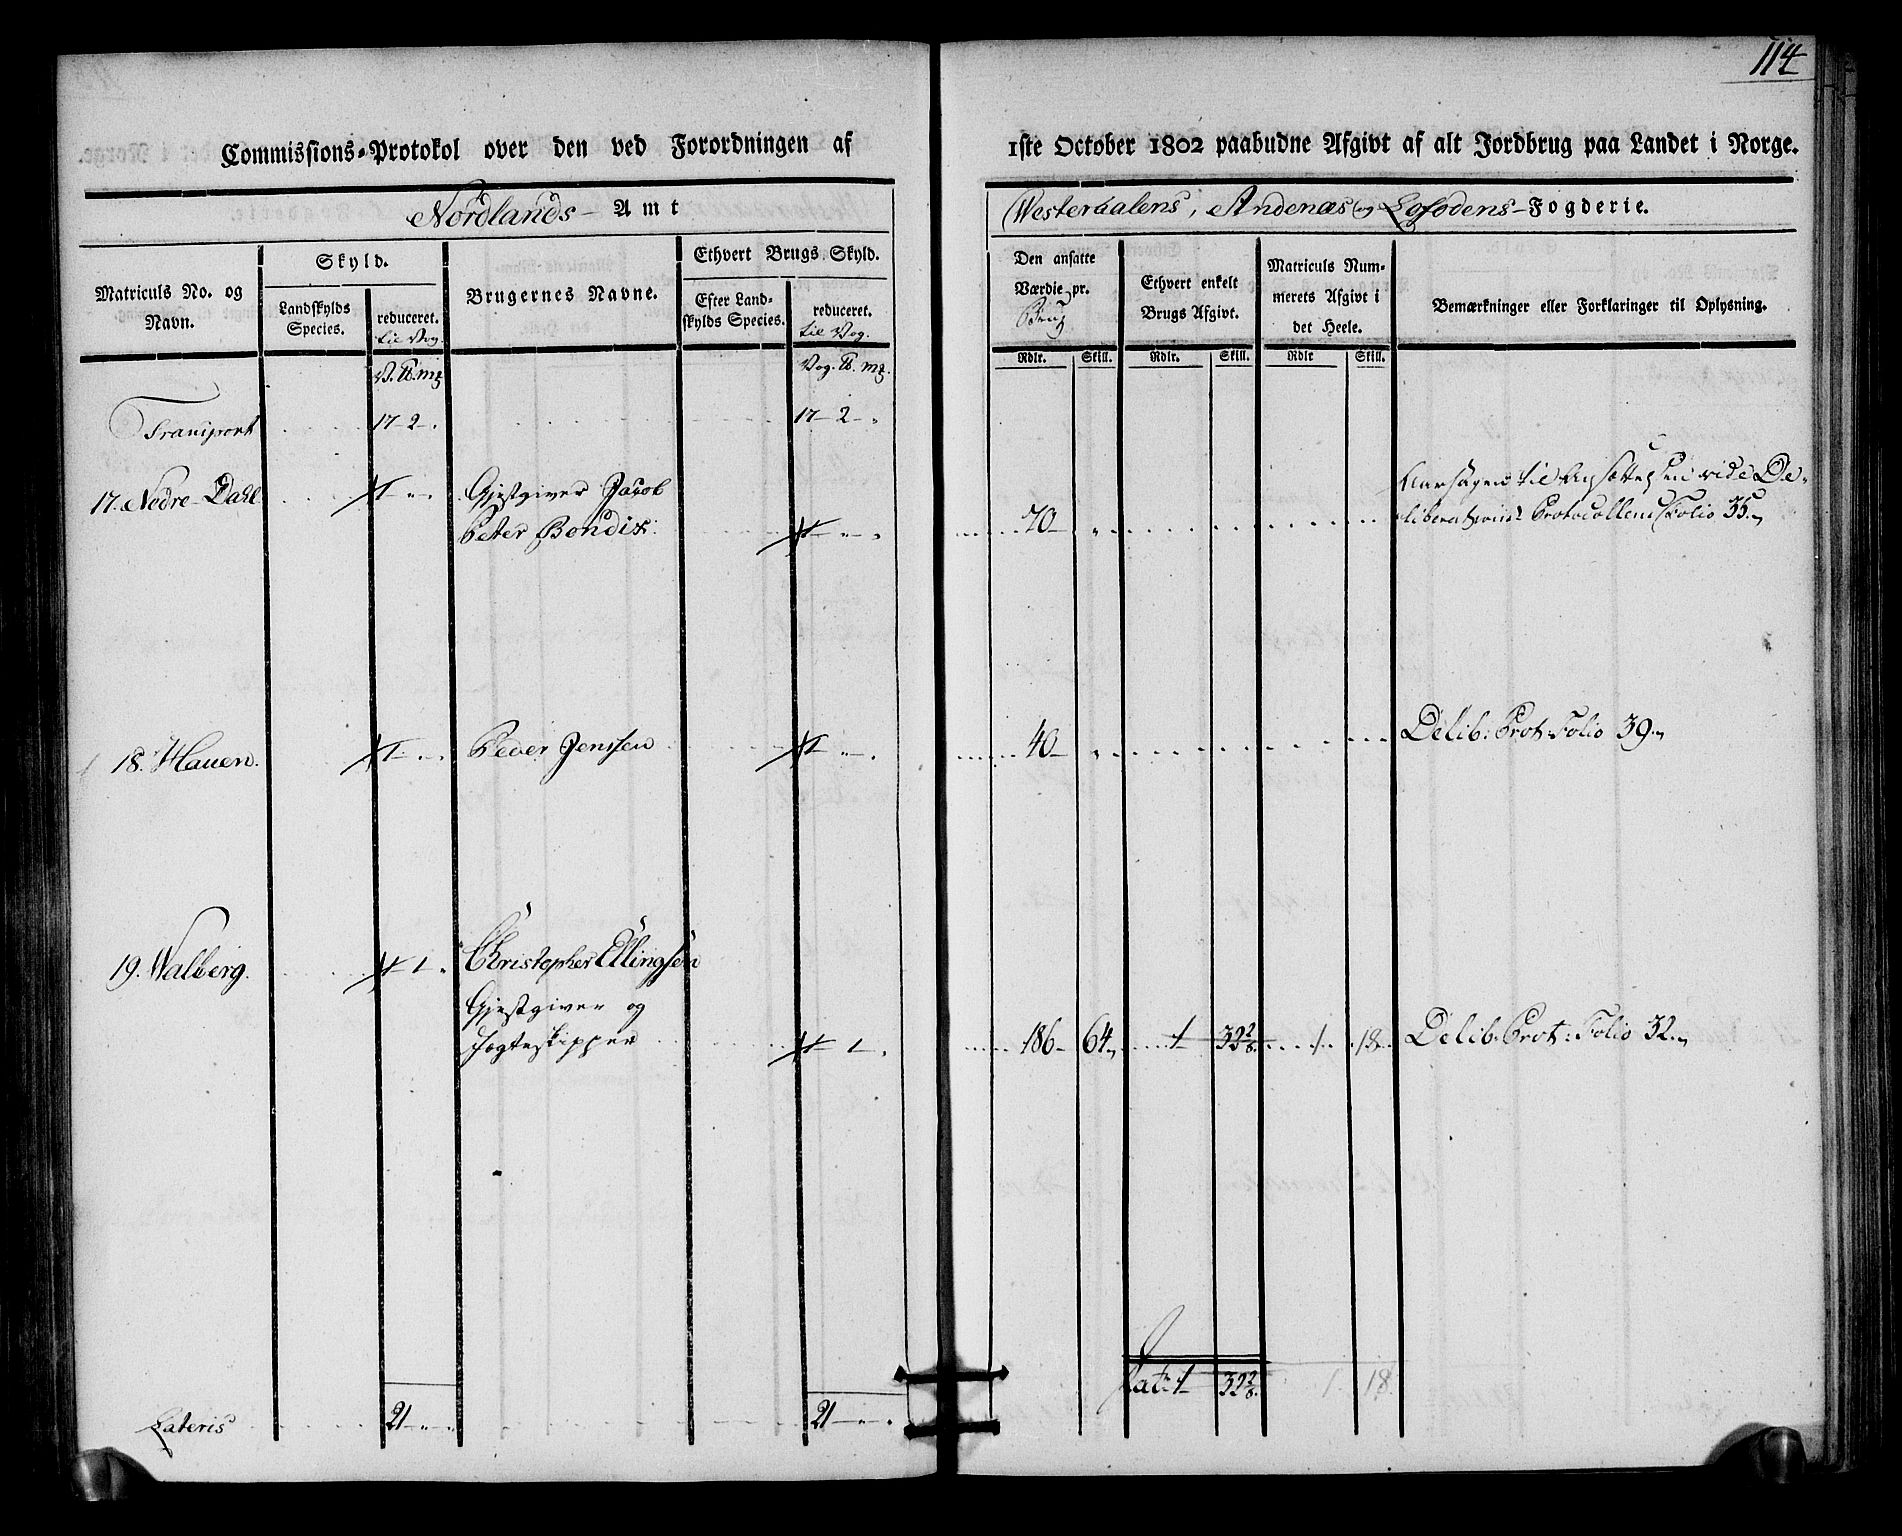 114
Commissions-Protokol over den ved Forordningen af 1ste October 1802 paabudne Afgivt af alt Jordbrug paa Landet i Norge.
Nordlands-Amt
Westeraalens, Andenæs og Lofodens-Fogderie.
Matriculs No. og Navn.
Skyld.
Landskylds Species.
reduceret. til Vog.
Brugernes Navne.
Ethvert Brugs Skyld.
Efter Landskylds Species.
reduceret. til Vog.
Den ansatte Værdie pr. Brug
Ethvert enkelt Brugs Afgivt.
Matriculs Nummerets Afgivt i det Heele.
Bemærkninger eller Forklaringer til Oplysning.
Rdlr. Skill. Rdlr. Skill. Rdlr Skill.
V. ℔. mg Vog. ℔. mg.
Transport 17-2-. 17-2-.
17. Nedre-Dahl Gjestgiver Jacob
Peter Bendix: 70
til vide De-
Protocollens Folio 35.
18. Hauen. 1 Peder Jenssen 1 40 Delib: Prot: Folio 39.
19. Walberg. 1 Christopher Ellingsen
Gjestgiver og
Jogteskipper 1 186 64 1 32 2/8 1 18 Delib: Prot: Folio 32.
Lat: 1 32 2/8 1 18
Lateris 21 21